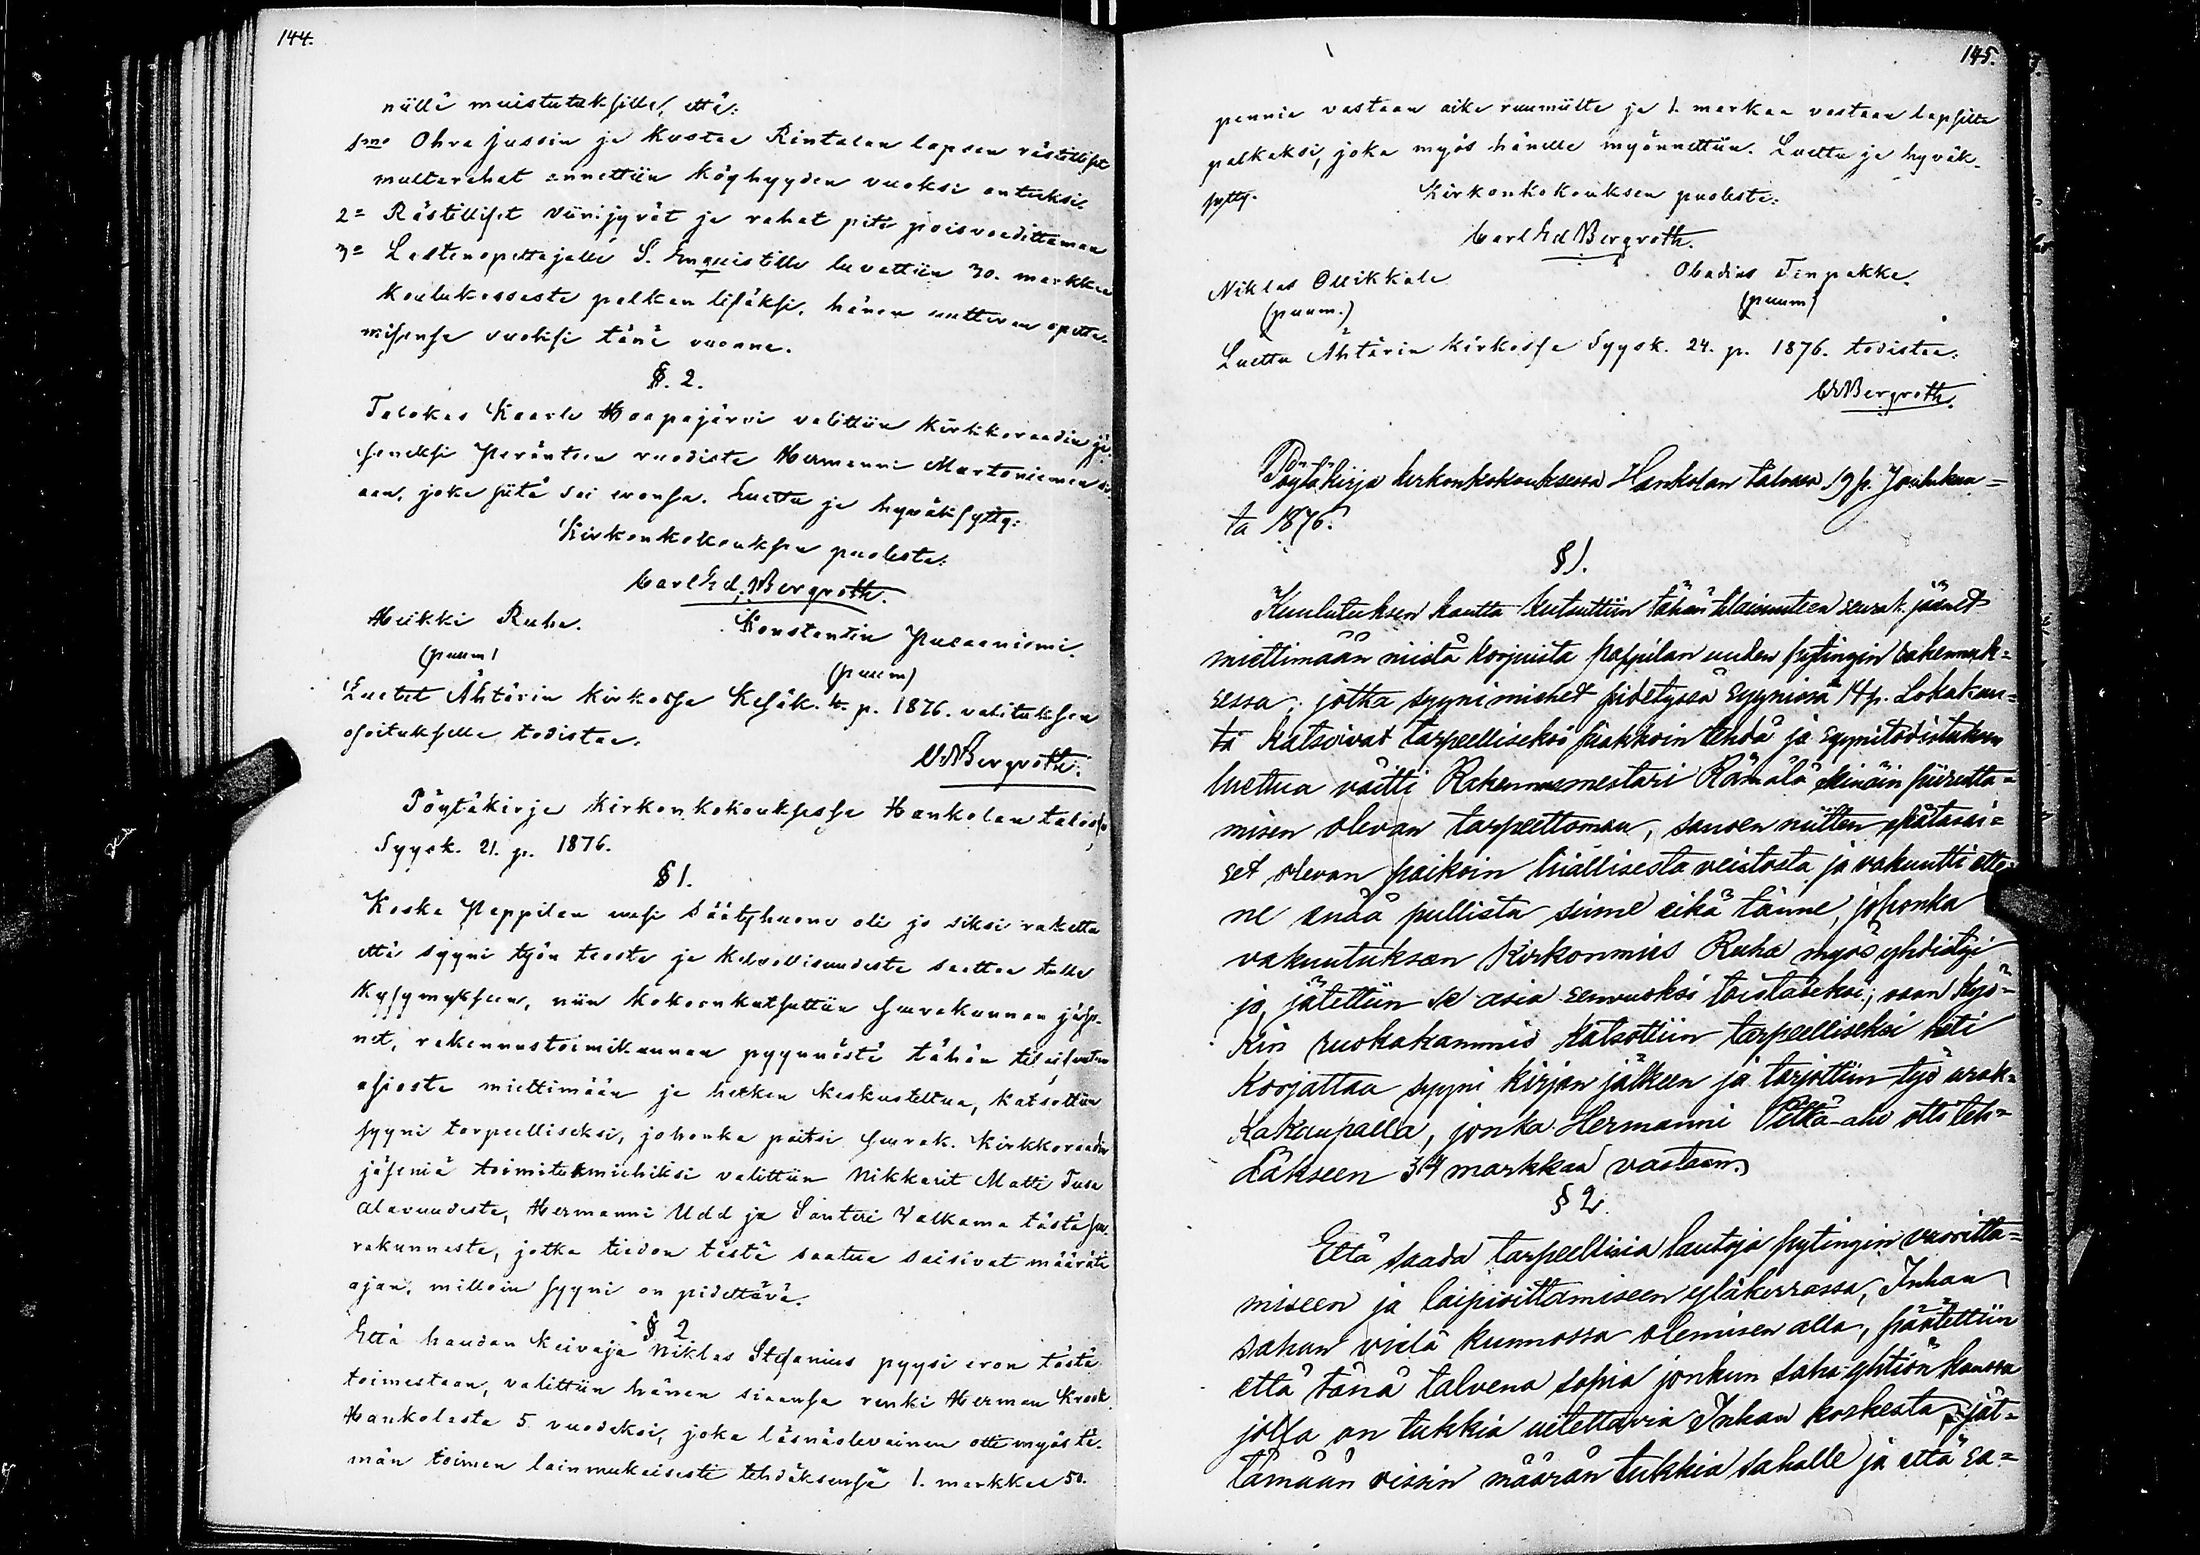 144.
niillä muistutuksilla, että:
1mo Ohra Jussin ja Kustaa Rintalan lapsen rästilliset
multarahat annettiin köyhyyden vuoksi anteeksi.
2= Rästilliset viinijyvät ja rahat piti poisvaadittaman
3= Lastenopettajalle S. Enquistille luvattiin 30. markkaa
koulukassasta palkan lisäksi, hänen uutteran opetta-
misensa vuoksi tänä vuonna.
§. 2.
Talokas Kaarle Haapajärvi valittiin kirkkoraadin jä-
seneksi Peränteen vuodista Hermanni Martoniemen si-
aan, joka siitä sai eronsa. Luettu ja hyväksytty:
Kirkonkokouksen puolesta:
Carl Ed. Bergroth.
Heikki Ruha. Konstantin Palaanismi.
(puum) (puum)
Luetut Ähtärin kirkossa Kesäk. 4. p. 1876. valituksen
osoituksella, todistaa.
CEBergroth.
Pöytäkirja kirkonkokouksessa Hankolan talossa
Syysk. 21. p. 1876.
§ 1.
Koska Pappilan uusi säätyhuone oli jo siksi rakettu
että syyni työn teosta ja kelvollisuudesta saattaa tulla
kysymykseen, niin kokoonkutsuttiin seurakunnan jäse-
net, rakennustoimikunnan pyynnöstä tähän tilaisuuteen
asiasta miettimään ja hetken keskusteltua, katsottiin
syyni tarpeelliseksi, johonka paitsi seurak. kirkkoraadin
jäseniä toimitusmiehiksi valittiin Nikkarit Matti Tusa
Alavuudesta, Hermanni Udd ja Santeri Valkama tästä seu-
rakunnasta, jotka tiedon tästä saatua saisivat määrätä
ajan, milloin syyni on pidettävä.
§ 2
Että haudan kaivaja Niklas Stefanius pyysi eron tästä
toimestaan, valittiin hänen siaansa renki Herman Krook
Hankolasta 5 vuodeksi, joka läsnäolevainen otti myös tä-
män toimen lainmukaisesti tehdäksensä 1. markkaa 50.
145.
pennia vastaan aika ruumiilta ja 1. markaa vastaan lapsilta
palkaksi, joka myös hänelle myönnettiin. Luettu ja hyväk-
sytty. Kirkonkokouksen puolesta:
Carl Ed Bergroth.
Niklas Ollikkala Obadias Finpakka.
(puum.) (puum)
Luettu Ähtärin kirkossa Syysk. 24. p. 1876. todistaa:
CEBergroth.
Pöytäkirja kirkonkokouksessa Hankolan talossa 19 p. Joulukuu=
ta 1876.
§ 1.
Kuulutuksen kautta kutsuttiin tähän tilaisuuteen seurak. jäsenet
miettimään niistä korjuista pappilan uuden pytingin rakennuk=
sessa, jotka syynimiehet pidetyssä syynissä 14 p. Lokakuu=
ta katsoivat tarpeelliseksi tehdä ja syynitodistuksen
luettua väitti Rakennusmestari Rämälä seinäin piirutta=
misen olevan tarpeettoman, sanoen niitten epätasai=
set olevan paikoin liiallisesta veistosta ja vakuutti ette
ne enää pullista sinne eikä tänne, johonka
vakuutuksaan Kirkonmies Ruha myös yhdistyi
ja jätettiin se asia senvuoksi toistaseksi; vaan kyö=
kin ruokakammio katsottiin tarpeelliseksi heti
korjattaa syyni kirjan jälkeen ja tarjottiin työ urak=
kakaupalla, jonka Hermanni Pettä-aho otti teh=
däkseen 34 markkaa vastaan.
§ 2.
Että saada tarpeellisia lautoja pytingin vuoritta=
miseen ja laipioittamiseen yläkerrassa, Inhan
sahan vielä kunnossa olemisen alla, päätettiin
että tänä talvena sopia jonkun saha-yhtiön kanssa
jolla on tukkia uitettavia Inhan koskesta, jät=
tämään vissin määrän tukkia sahalle ja että sa=